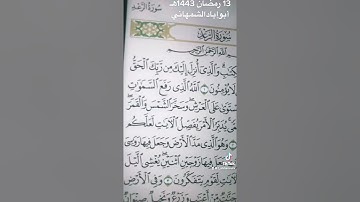 13 رمضان 1443هـ
أبو إياد الشمهاني
سُورَةُ الرَّعْدِ
سُورَةُ الرَّعْدِ
بِسْمِ اللَّهِ الرَّحْمَٰنِ الرَّحِيمِ
وَالَّذِي أُنزِلَ إِلَيْكَ مِن رَّبِّكَ الْحَقُّ
لَا يُؤْمِنُونَ ۝ اللَّهُ الَّذِي رَفَعَ السَّمَاوَاتِ
اسْتَوَىٰ عَلَى الْعَرْشِ وَسَخَّرَ الشَّمْسَ وَالْقَمَرَ
يُدَبِّرُ الْأَمْرَ يُفَصِّلُ الْآيَاتِ لَعَلَّكُم
وَهُوَ الَّذِي مَدَّ الْأَرْضَ وَجَعَلَ فِيهَا رَوَاسِيَ
جَعَلَ فِيهَا زَوْجَيْنِ اثْنَيْنِ يُغْشِي اللَّيْلَ
لَآيَاتٍ لِّقَوْمٍ يَتَفَكَّرُونَ ۝ وَفِي الْأَرْضِ
وَجَنَّاتٌ مِّنْ أَعْنَابٍ وَزَرْعٌ وَنَخِيلٌ صِنْوَانٌ